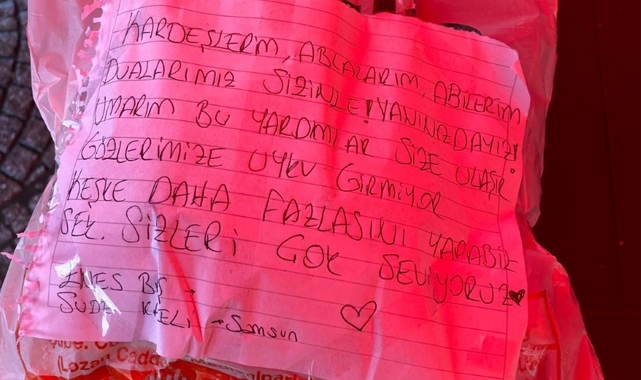 KARDEŞLERİM, ABLALARIM, ABİLERİM
DUALARIMIZ SİZİNLE! YANINIZDAYIZ!
UMARIM BU YARDIMLAR SİZE ULAŞIR.
GÖZLERİMİZE UYKU GİRMİYOR
KEŞKE DAHA FAZLASINI YAPABİL
SEK. SİZLERİ ÇOK SEVİYORUZ
ENES BİŞ
SUDE KELEŞ → Samsun
(Lozan Cadde